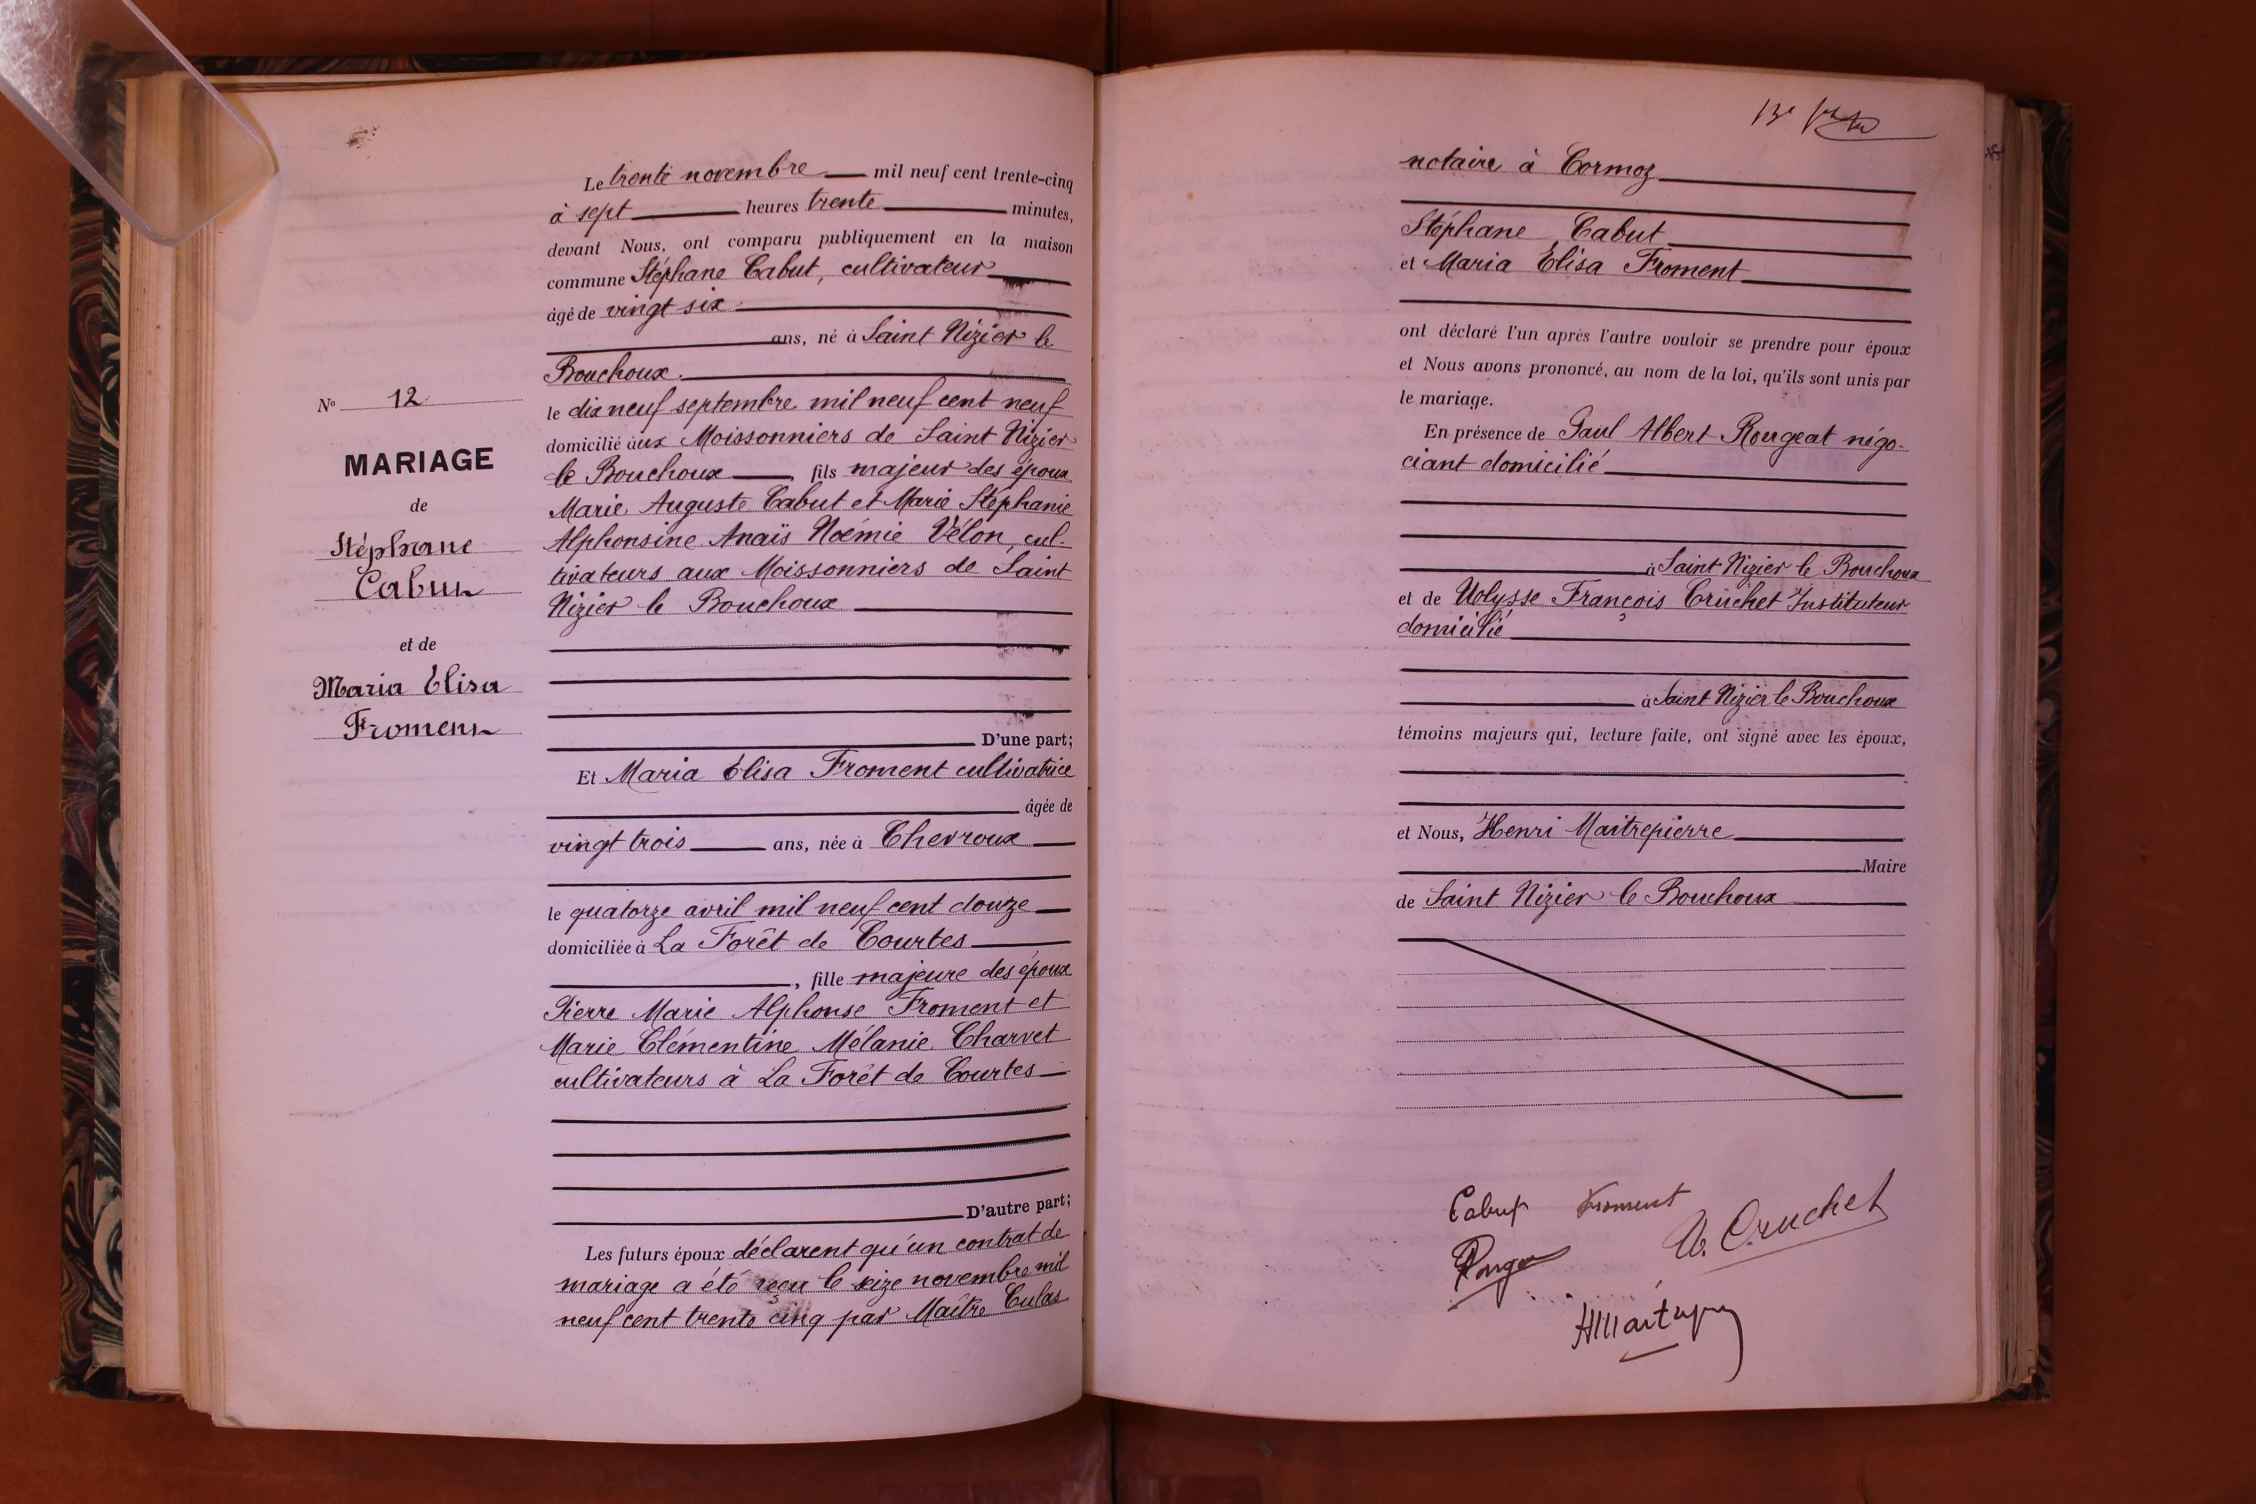 Le trente novembre mil neuf cent trente-cinq
à sept heures trente minutes,
devant Nous, ont comparu publiquement en la maison
commune Stéphane Cabut, cultivateur
âgé de vingt six
ans, né à Saint Nizier le
Bouchoux
le dix neuf septembre mil neuf cent neuf
domicilié aux Moissonniers de Saint Nizier
le Bouchoux, fils majeur des époux
Marie Auguste Cabut et Marie Stéphanie
Alphonsine Anaïs Noémie Vélon, cul-
tivateurs aux Moissonniers de Saint
Nizier le Bouchoux
D'une part;
Et Maria Elisa Froment cultivatrice
âgée de
vingt trois ans, née à Chevroux
le quatorze avril mil neuf cent douze
domiciliée à La Forêt de Courtes
, fille majeure des époux
Pierre Marie Alphonse Froment et
Marie Clémentine Mélanie Charvet
cultivateurs à La Forêt de Courtes
D'autre part;
Les futurs époux déclarent qu'un contrat de
mariage a été reçu le seize novembre mil
neuf cent trente cinq par Maître Culas
No 12
MARIAGE
de
Stéphane
Cabut
et de
Maria Elisa
Froment
notaire à Cormoz
Stéphane Cabut
et Maria Elisa Froment
ont déclaré l'un après l'autre vouloir se prendre pour époux
et Nous avons prononcé, au nom de la loi, qu'ils sont unis par
le mariage.
En présence de Paul Albert Rougeat négo-
ciant domicilié
à Saint Nizier le Bouchoux
et de Uolysse François Crüchet Instituteur
domicilié
à Saint Nizier le Bouchoux
témoins majeurs qui, lecture faite, ont signé avec les époux,
et Nous, Henri Maitrepierre
Maire
de Saint Nizier le Bouchoux
Cabut Froment
U. Cruchet